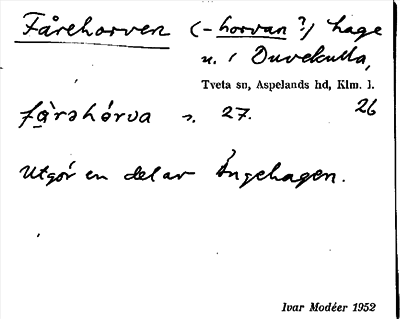 Fårehorven (-horvan?) hage
n. i Duvekulla,
Tveta sn, Aspelands hd, Klm. l.
fą̀rəhórva s. 27. 26
Utgör en del av Ängehagen.
Ivar Modéer 1952